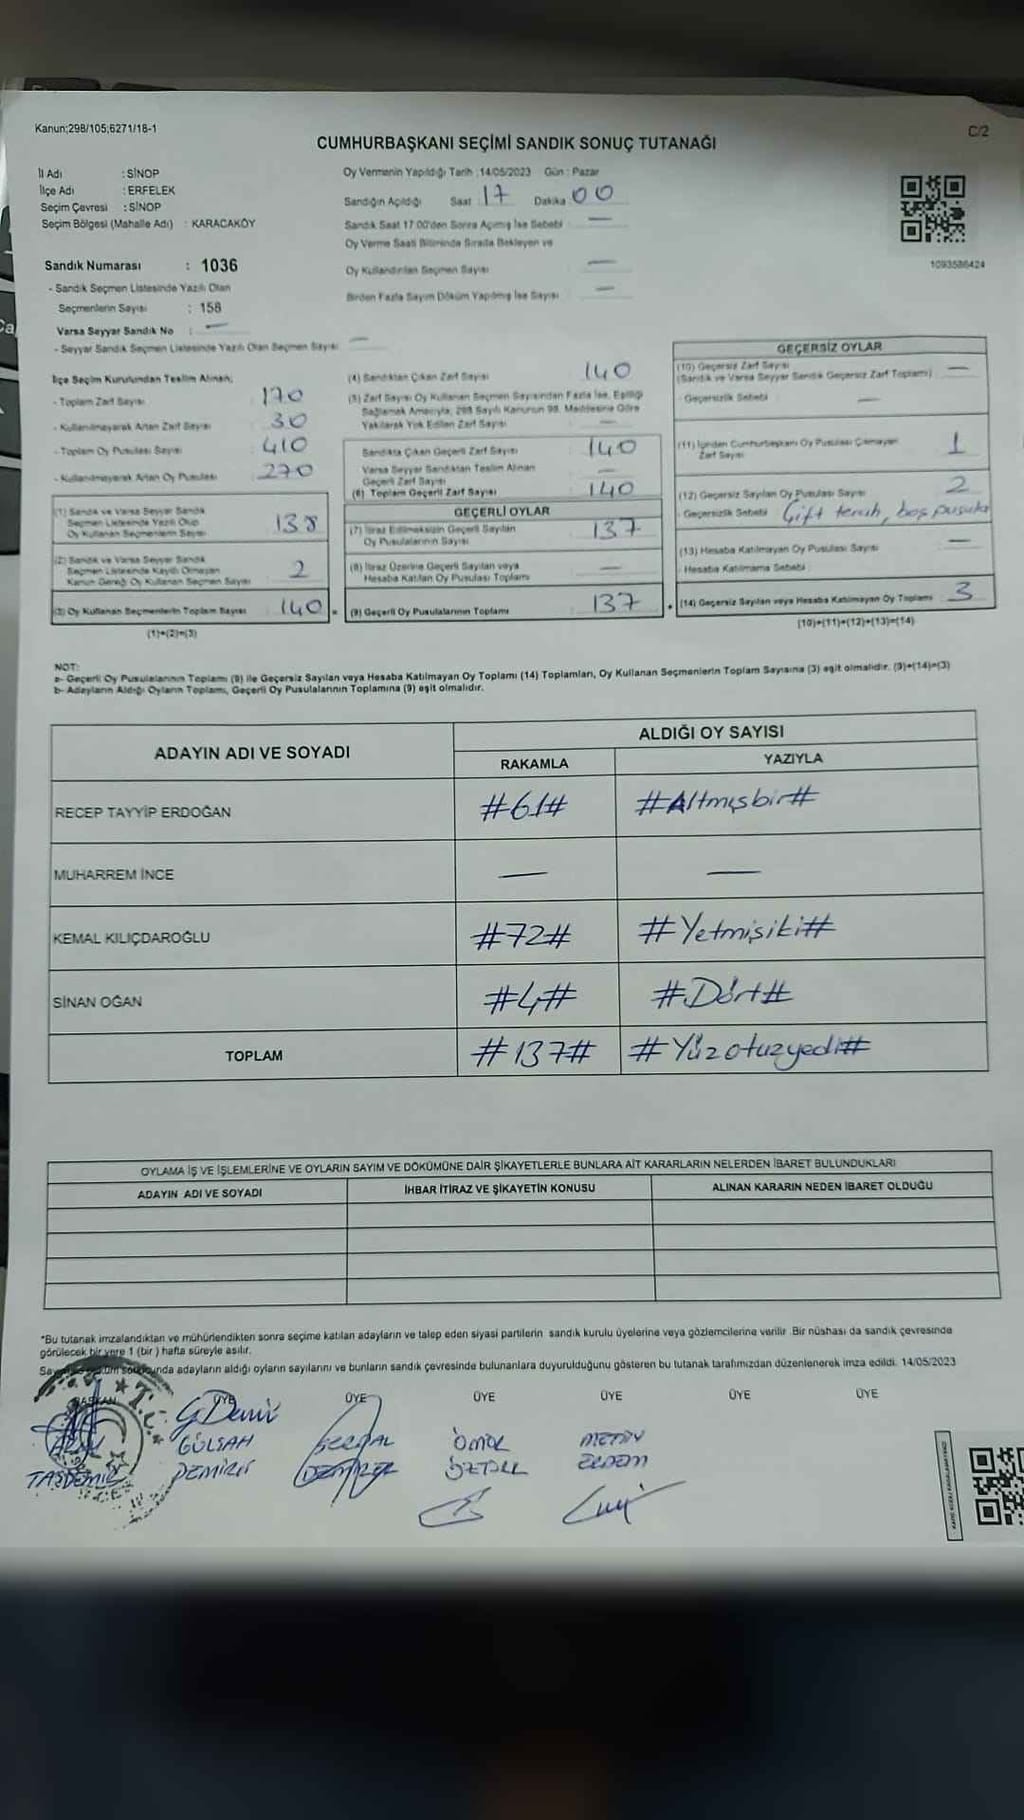 Kanun;298/105;6271/18-1
C/2
CUMHURBAŞKANI SEÇİMİ SANDIK SONUÇ TUTANAĞI
İl Adı : SİNOP
İlçe Adı : ERFELEK
Seçim Çevresi : SİNOP
Seçim Bölgesi (Mahalle Adı) : KARACAKÖY
Sandık Numarası : 1036
- Sandık Seçmen Listesinde Yazılı Olan
Seçmenlerin Sayısı : 158
Varsa Seyyar Sandık No : —
- Seyyar Sandık Seçmen Listesinde Yazılı Olan Seçmen Sayısı —
Oy Vermenin Yapıldığı Tarih : 14/05/2023 Gün : Pazar
Sandığın Açıldığı Saat : 17 Dakika 00
Sandık Saat 17:00'den Sonra Açılmış İse Sebebi —
Oy Verme Saati Bitiminde Sırada Bekleyen ve
Oy Kullandırılan Seçmen Sayısı —
Birden Fazla Sayım Döküm Yapılmış İse Sayısı —
1093586424
İlçe Seçim Kurulundan Teslim Alınan;
- Toplam Zarf Sayısı 170
- Kullanılmayarak Artan Zarf Sayısı 30
- Toplam Oy Pusulası Sayısı 410
- Kullanılmayarak Artan Oy Pusulası 270
(1) Sandık ve Varsa Seyyar Sandık
Seçmen Listesinde Yazılı Olup
Oy Kullanan Seçmenlerin Sayısı 138
(2) Sandık ve Varsa Seyyar Sandık
Seçmen Listesinde Kayıtlı Olmayan
Kanun Gereği Oy Kullanan Seçmen Sayısı 2
(3) Oy Kullanan Seçmenlerin Toplam Sayısı 140
(1)+(2)=(3)
(4) Sandıktan Çıkan Zarf Sayısı 140
(5) Zarf Sayısı Oy Kullanan Seçmen Sayısından Fazla İse, Eşitliği
Sağlamak Amacıyla, 298 Sayılı Kanunun 98. Maddesine Göre
Yakılarak Yok Edilen Zarf Sayısı —
Sandıkta Çıkan Geçerli Zarf Sayısı 140
Varsa Seyyar Sandıktan Teslim Alınan
Geçerli Zarf Sayısı —
(6) Toplam Geçerli Zarf Sayısı 140
GEÇERLİ OYLAR
(7) İtiraz Edilmeksizin Geçerli Sayılan
Oy Pusulalarının Sayısı 137
(8) İtiraz Üzerine Geçerli Sayılan veya
Hesaba Katılan Oy Pusulası Toplamı —
(9) Geçerli Oy Pusulalarının Toplamı 137
GEÇERSİZ OYLAR
(10) Geçersiz Zarf Sayısı
(Sandık ve Varsa Seyyar Sandık Geçersiz Zarf Toplamı) —
Geçersizlik Sebebi —
(11) İçinden Cumhurbaşkanı Oy Pusulası Çıkmayan
Zarf Sayısı 1
(12) Geçersiz Sayılan Oy Pusulası Sayısı 2
Geçersizlik Sebebi Çift tercih, boş pusula
(13) Hesaba Katılmayan Oy Pusulası Sayısı —
Hesaba Katılmama Sebebi
(14) Geçersiz Sayılan veya Hesaba Katılmayan Oy Toplamı 3
(10)+(11)+(12)+(13)=(14)
NOT:
a- Geçerli Oy Pusulalarının Toplamı (9) ile Geçersiz Sayılan veya Hesaba Katılmayan Oy Toplamı (14) Toplamları, Oy Kullanan Seçmenlerin Toplam Sayısına (3) eşit olmalıdır. (9)+(14)=(3)
b- Adayların Aldığı Oyların Toplamı, Geçerli Oy Pusulalarının Toplamına (9) eşit olmalıdır.
ADAYIN ADI VE SOYADI ALDIĞI OY SAYISI
RAKAMLA YAZIYLA
RECEP TAYYİP ERDOĞAN #61# #Altmışbir#
MUHARREM İNCE — —
KEMAL KILIÇDAROĞLU #72# #Yetmişiki#
SİNAN OĞAN #4# #Dört#
TOPLAM #137# #Yüzotuzyedi#
OYLAMA İŞ VE İŞLEMLERİNE VE OYLARIN SAYIM VE DÖKÜMÜNE DAİR ŞİKAYETLERLE BUNLARA AİT KARARLARIN NELERDEN İBARET BULUNDUKLARI
ADAYIN ADI VE SOYADI İHBAR İTİRAZ VE ŞİKAYETİN KONUSU ALINAN KARARIN NEDEN İBARET OLDUĞU
*Bu tutanak imzalandıktan ve mühürlendikten sonra seçime katılan adayların ve talep eden siyasi partilerin sandık kurulu üyelerine veya gözlemcilerine verilir. Bir nüshası da sandık çevresinde
görülecek bir yere 1 (bir) hafta süreyle asılır.
adayların aldığı oyların sayılarını ve bunların sandık çevresinde bulunanlara duyurulduğunu gösteren bu tutanak tarafımızdan düzenlenerek imza edildi. 14/05/2023
BAŞKAN ÜYE ÜYE ÜYE ÜYE ÜYE ÜYE
GDemir
GÜLŞAH ÖMER METİN
TAŞDEMİR DEMİRER DEMİRER ÖZTÜRK ERDEM